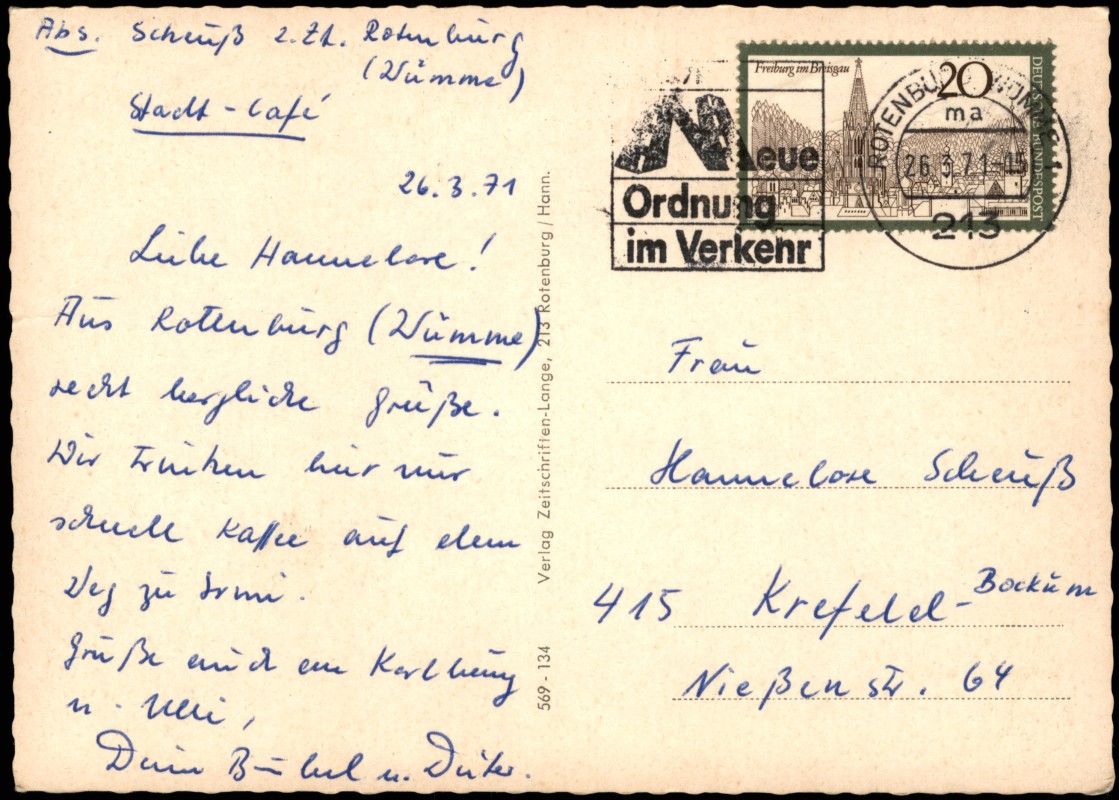 Abs. Scheuß z.Zt. Rotenburg
(Wümme)
Stadt-Café
26.3.71
Liebe Hannelore!
Aus Rotenburg (Wümme)
recht herzliche Grüße.
Wir trinken hier nur
schnell Kaffee auf dem
Weg zu Irmi.
Grüße auch an Karlheinz
u. Ulli,
Deine u.
Verlag Zeitschriften-Lange, 213 Rotenburg/Hann.
569-134
Freiburg im Breisgau
20
DEUTSCHE BUNDESPOST
Neue
Ordnung
im Verkehr
ROTENBURG WÜMME 1
ma
26.3.71-15
213
Frau
Hannelore Scheuß
415 Krefeld-Bockum
Nießenstr. 64